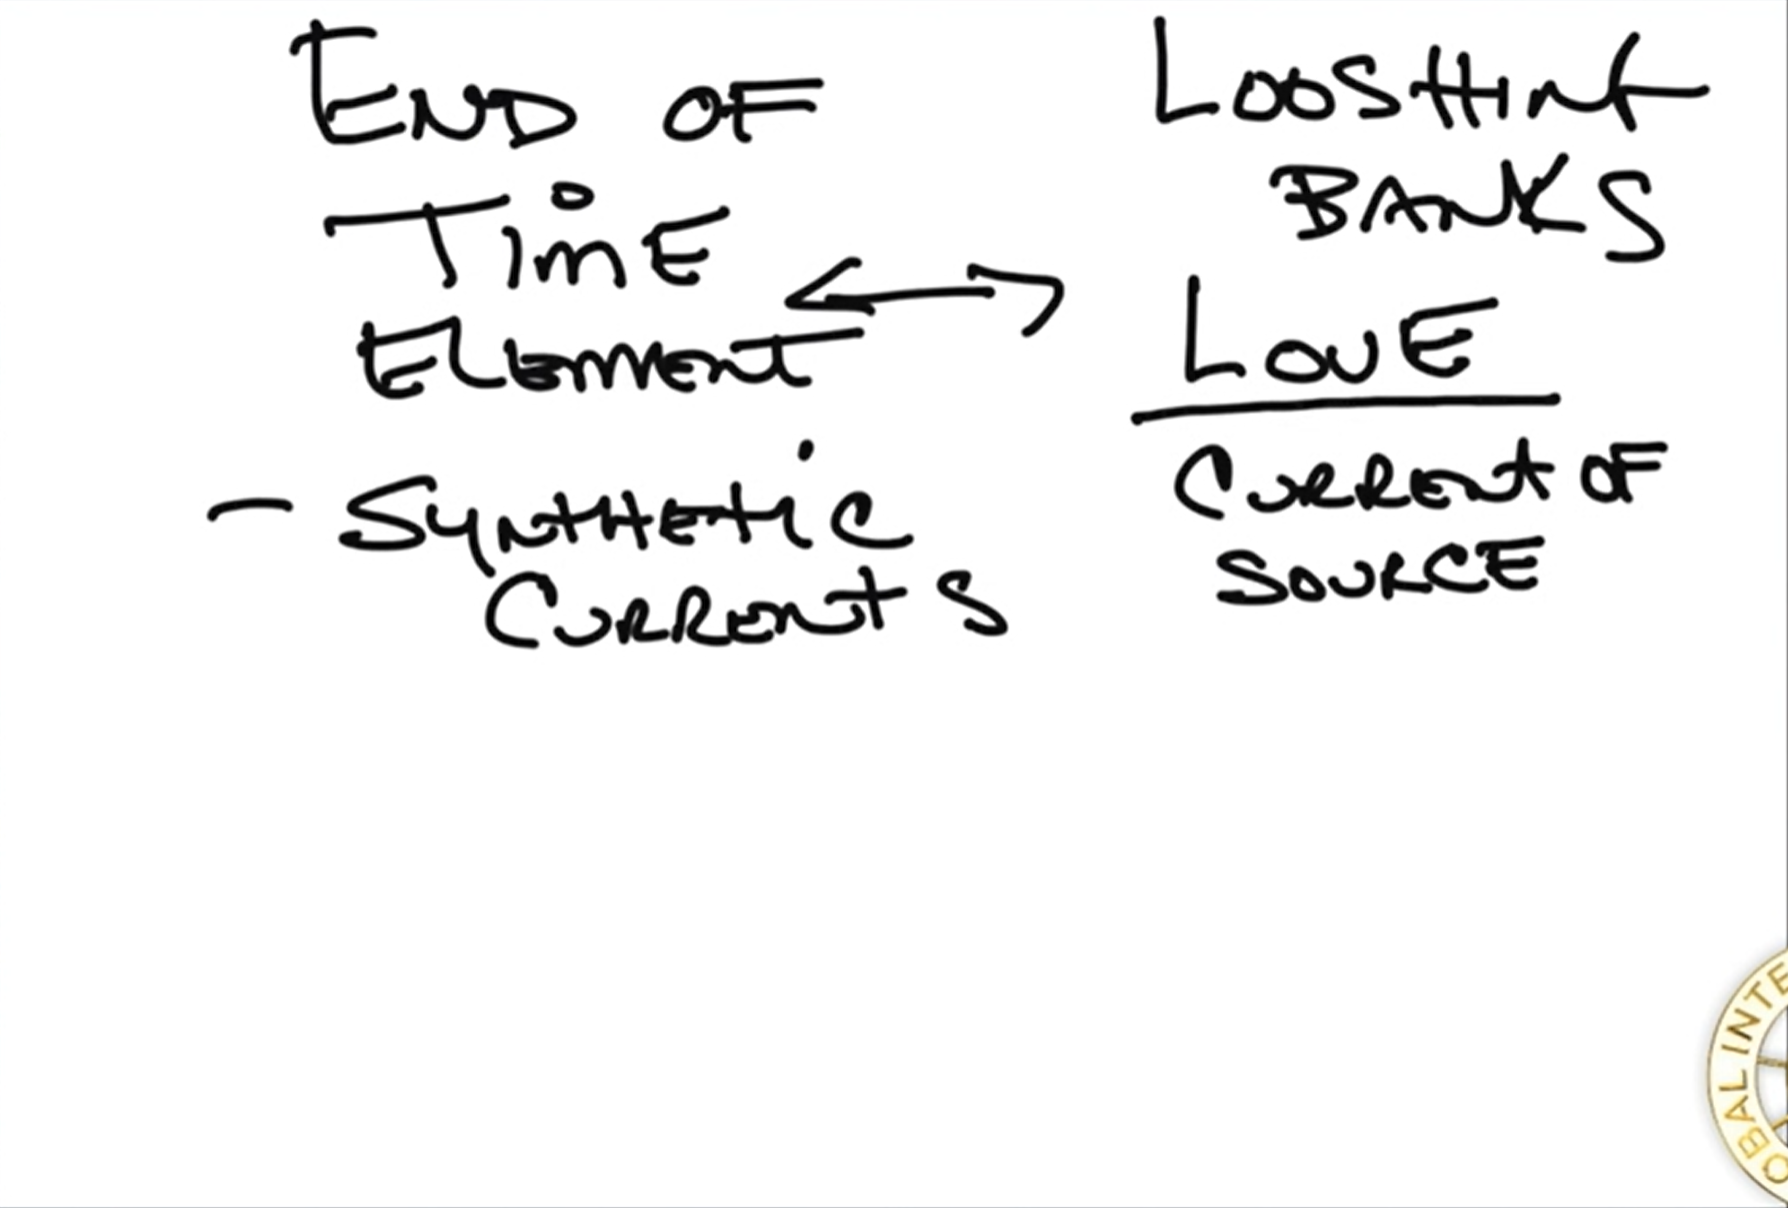 END OF
TIME
ELEMENT
- SYNTHETIC
CURRENTS
LOOSHINK
BANKS
LOVE
CURRENT OF
SOURCE
OBAL INTE